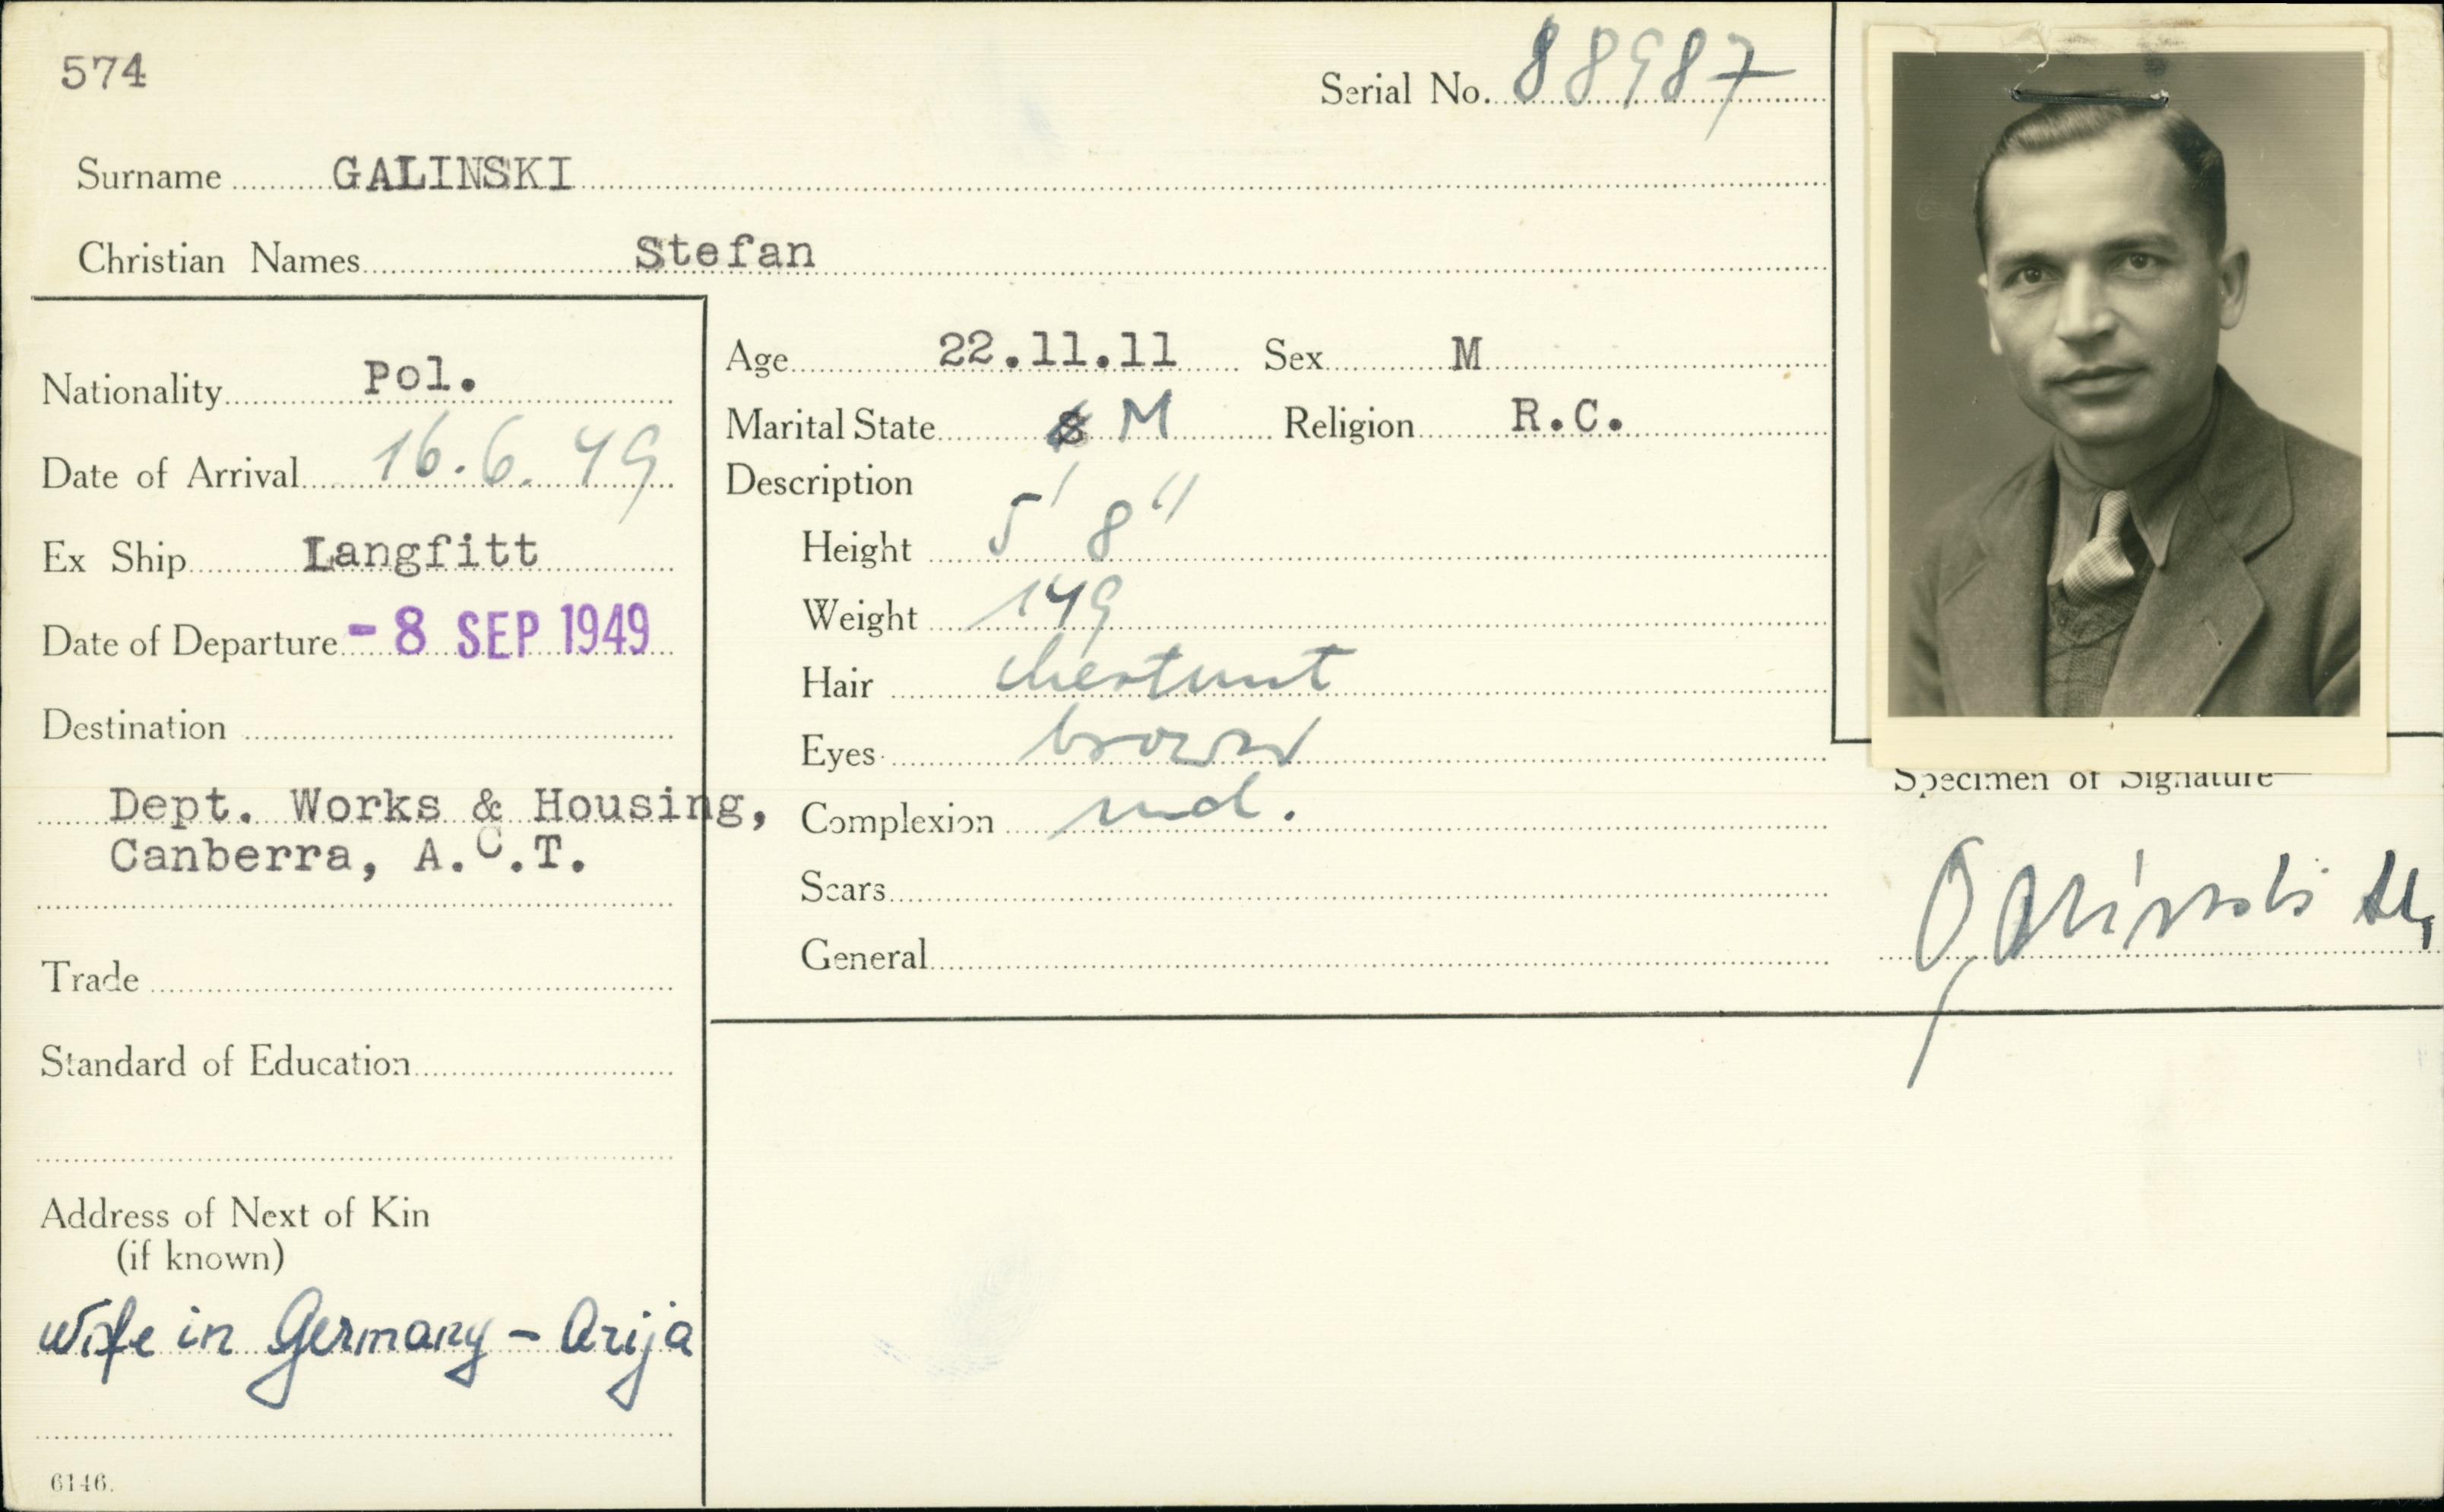 574
Serial No. 88987
Surname GALINSKI
Christian Names Stefan
Nationality Pol.
Date of Arrival 16.6.49
Ex Ship Langfitt
Date of Departure - 8 SEP 1949
Destination
Dept. Works & Housing,
Canberra, A.C.T.
Trade
Standard of Education
Address of Next of Kin
(if known)
Wife in Germany - Arija
6146.
Age 22.11.11 Sex M
Marital State S M Religion R.C.
Description
Height 5' 8"
Weight 149
Hair chestnut
Eyes brown
Complexion med.
Scars
General
Specimen of Signature
Galinski St.